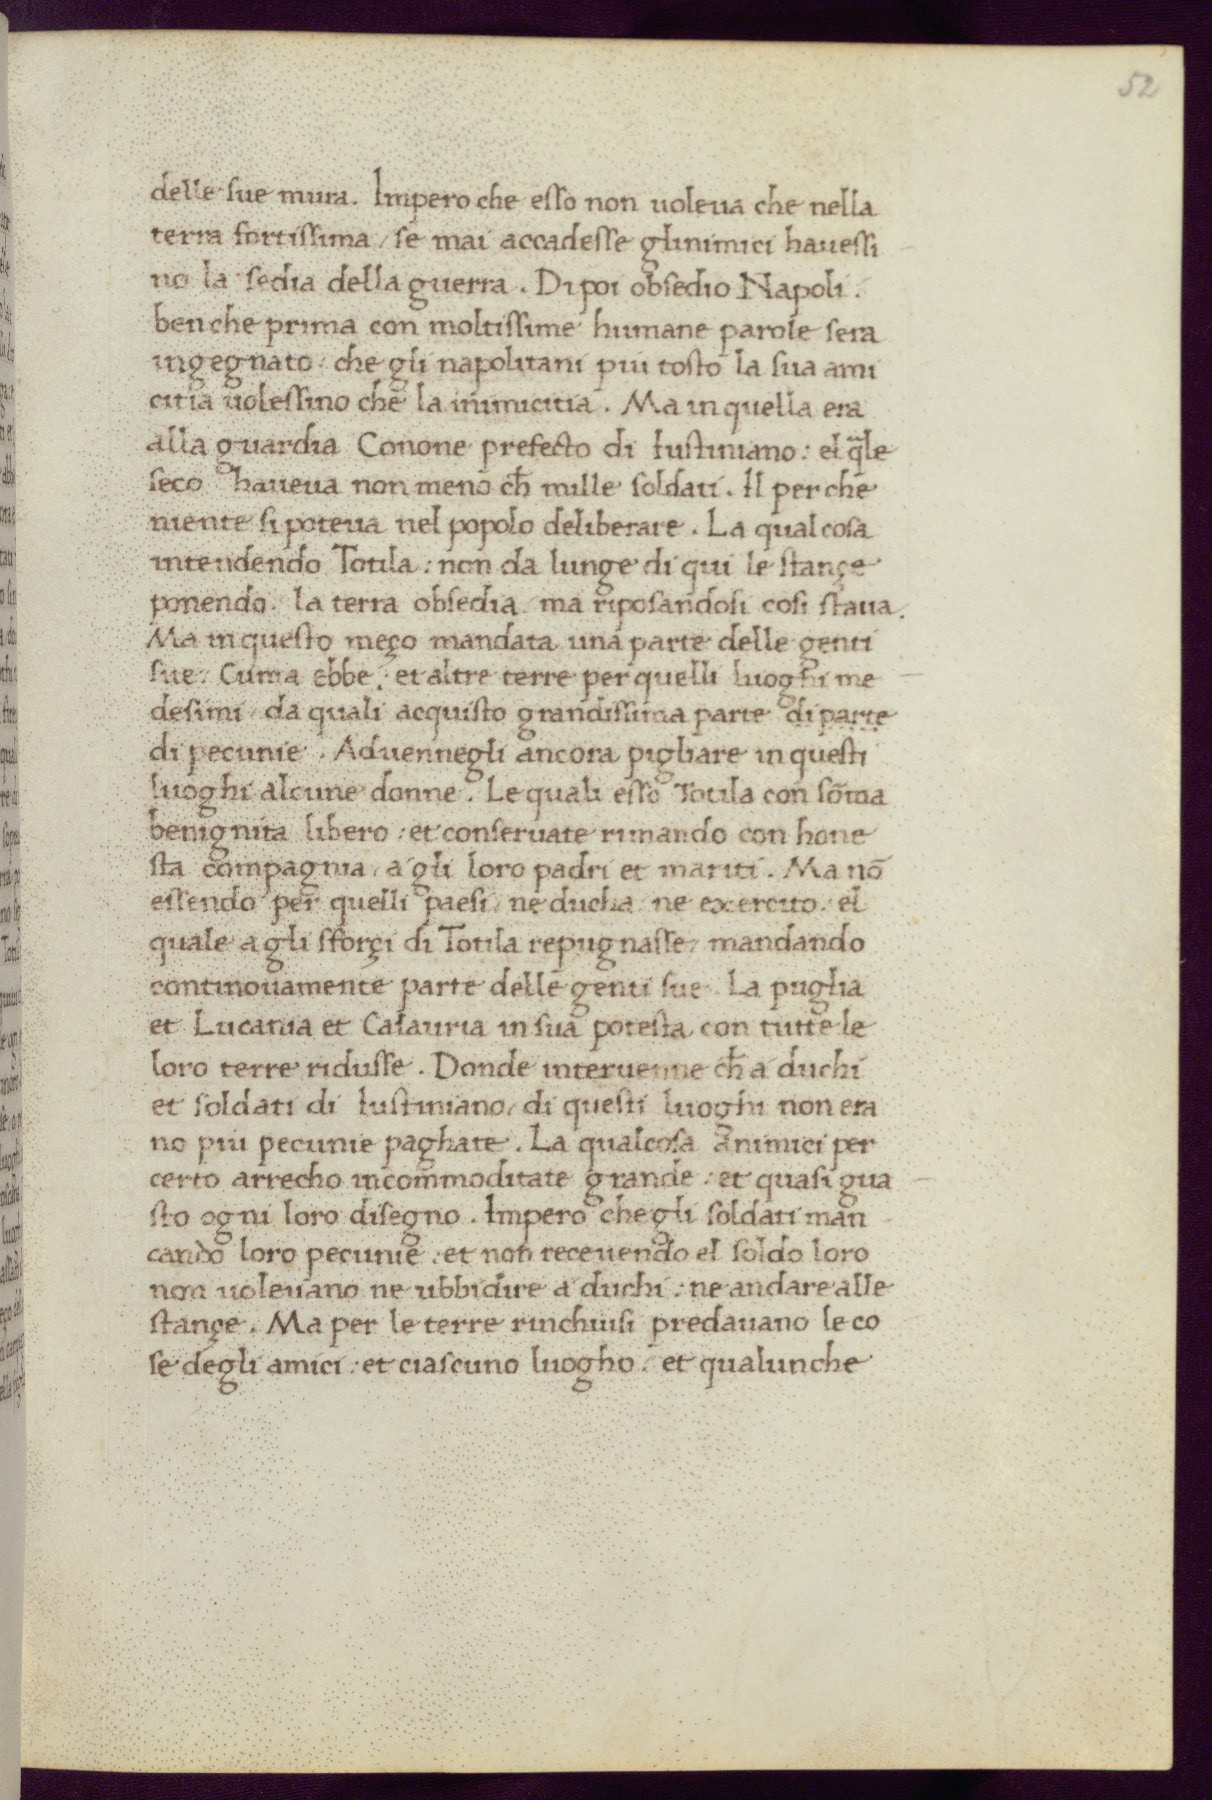 52
delle sue mura. Impero che esso non uoleua che nella
terra fortissima / se mai accadesse glinimici hauessi
no la sedia della guerra. Dipoi obsedio Napoli.
benche prima con moltissime humane parole sera
ingegnato: che gli napolitani piu tosto la sua ami
citia uolessino che la inimicitia. Ma in quella era
alla guardia Conone prefecto di Iustiniano: el q̃le
seco haueua non meno ch̄ mille soldati. Il perche
niente si poteua nel popolo deliberare. La qualcosa
intendendo Totila: non da lunge di qui le stançe
ponendo. la terra obsedia. ma riposandosi cosi staua.
Ma in questo meço mandata una parte delle genti
sue: Cuma ebbe: et altre terre per quelli luoghi me
desimi / da quali acquisto grandissima parte di parte
di pecunie. Aduennegli ancora pigliare in questi
luoghi alcune donne. Le quali esso Totila con sōma
benignita libero: et conseruate rimando con hone
sta compagnia / a gli loro padri et mariti. Ma nō
essendo per quelli paesi / ne ducha ne exercito: el
quale a gli sforçi di Totila repugnasse / mandando
continouamente parte delle genti sue. La puglia
et Lucania et Calauria in sua potesta con tutte le
loro terre ridusse. Donde interuenne ch̄ a duchi
et soldati di Iustiniano / di questi luoghi non era
no piu pecunie paghate. La qualcosa animici per
certo arrecho incom̄moditate grande: et quasi gua
sto ogni loro disegno. Impero che gli soldati man
cando loro pecunie: et non receuendo el soldo loro
non uoleuano ne ubbidire a duchi: ne andare alle
stançe. Ma per le terre rinchiusi predauano le co
se degli amici: et ciascuno luogho: et qualunche